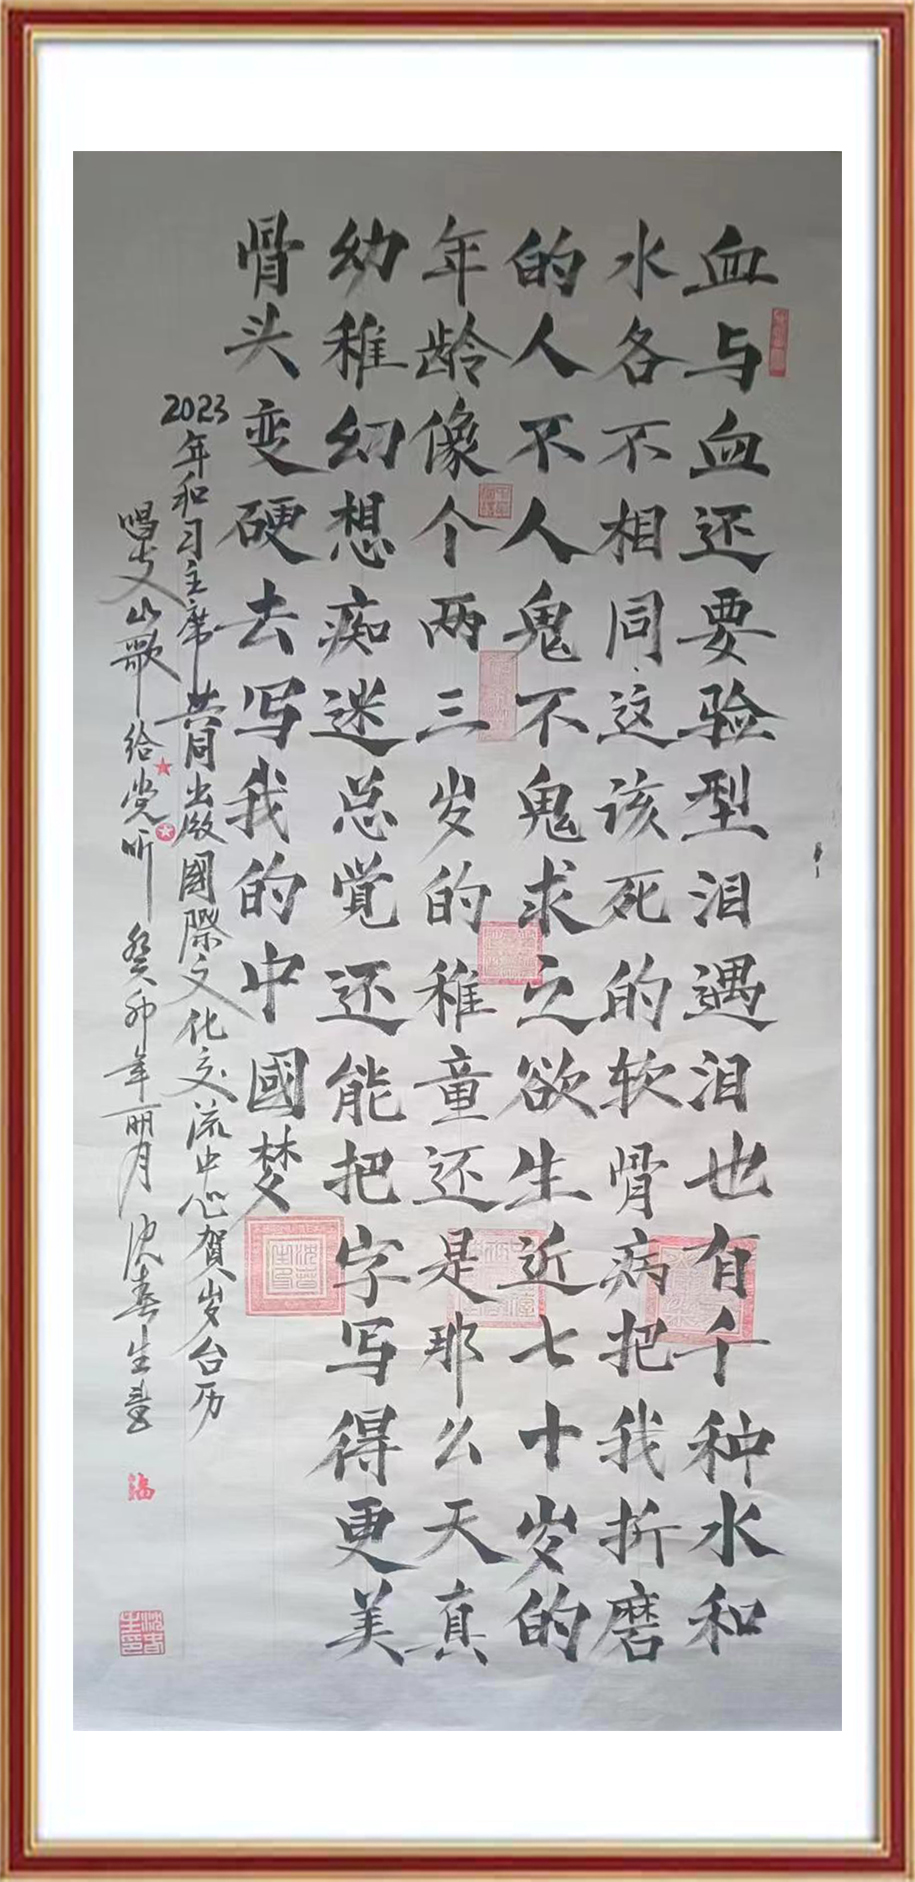 血与血还要验型泪遇泪也有千种水和
水各不相同这该死的软骨病把我折磨
的人不人鬼不鬼求之欲生近七十岁的
年龄像个两三岁的稚童还是那么天真
幼稚幻想痴迷总觉还能把字写得更美
骨头变硬去写我的中國梦
2023年和习主席共同出版國際文化交流中心賀岁台历
唱支山歌给党听 癸卯年 沈春生書